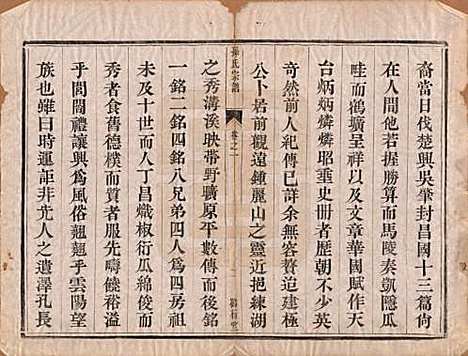 裔當日伐楚興吳肇封昌國十三篇尙
在人間他若握勝算而馬陵奏凱隱瓜
畦而鶴壙呈祥以及文章華國賦作天
台炳炳燐燐昭垂史冊者歷朝不少英
奇然前人紀傳已詳余無容贅迨建極
公卜居前觀遠鍾麗山之靈近挹練湖
孫氏宗譜
卷之一
之秀溝溪映帶野曠原平數傳而後銘
一銘二銘四銘八兄弟四人爲四房祖
未及十一人丁昌熾椒衍瓜綿安耕桑
秀者食舊德樸而質者服先疇饒裕溢
乎閭閻禮讓興爲風俗翹翹乎雲陽望
族也雖曰時運詎非先人之遺澤孔長